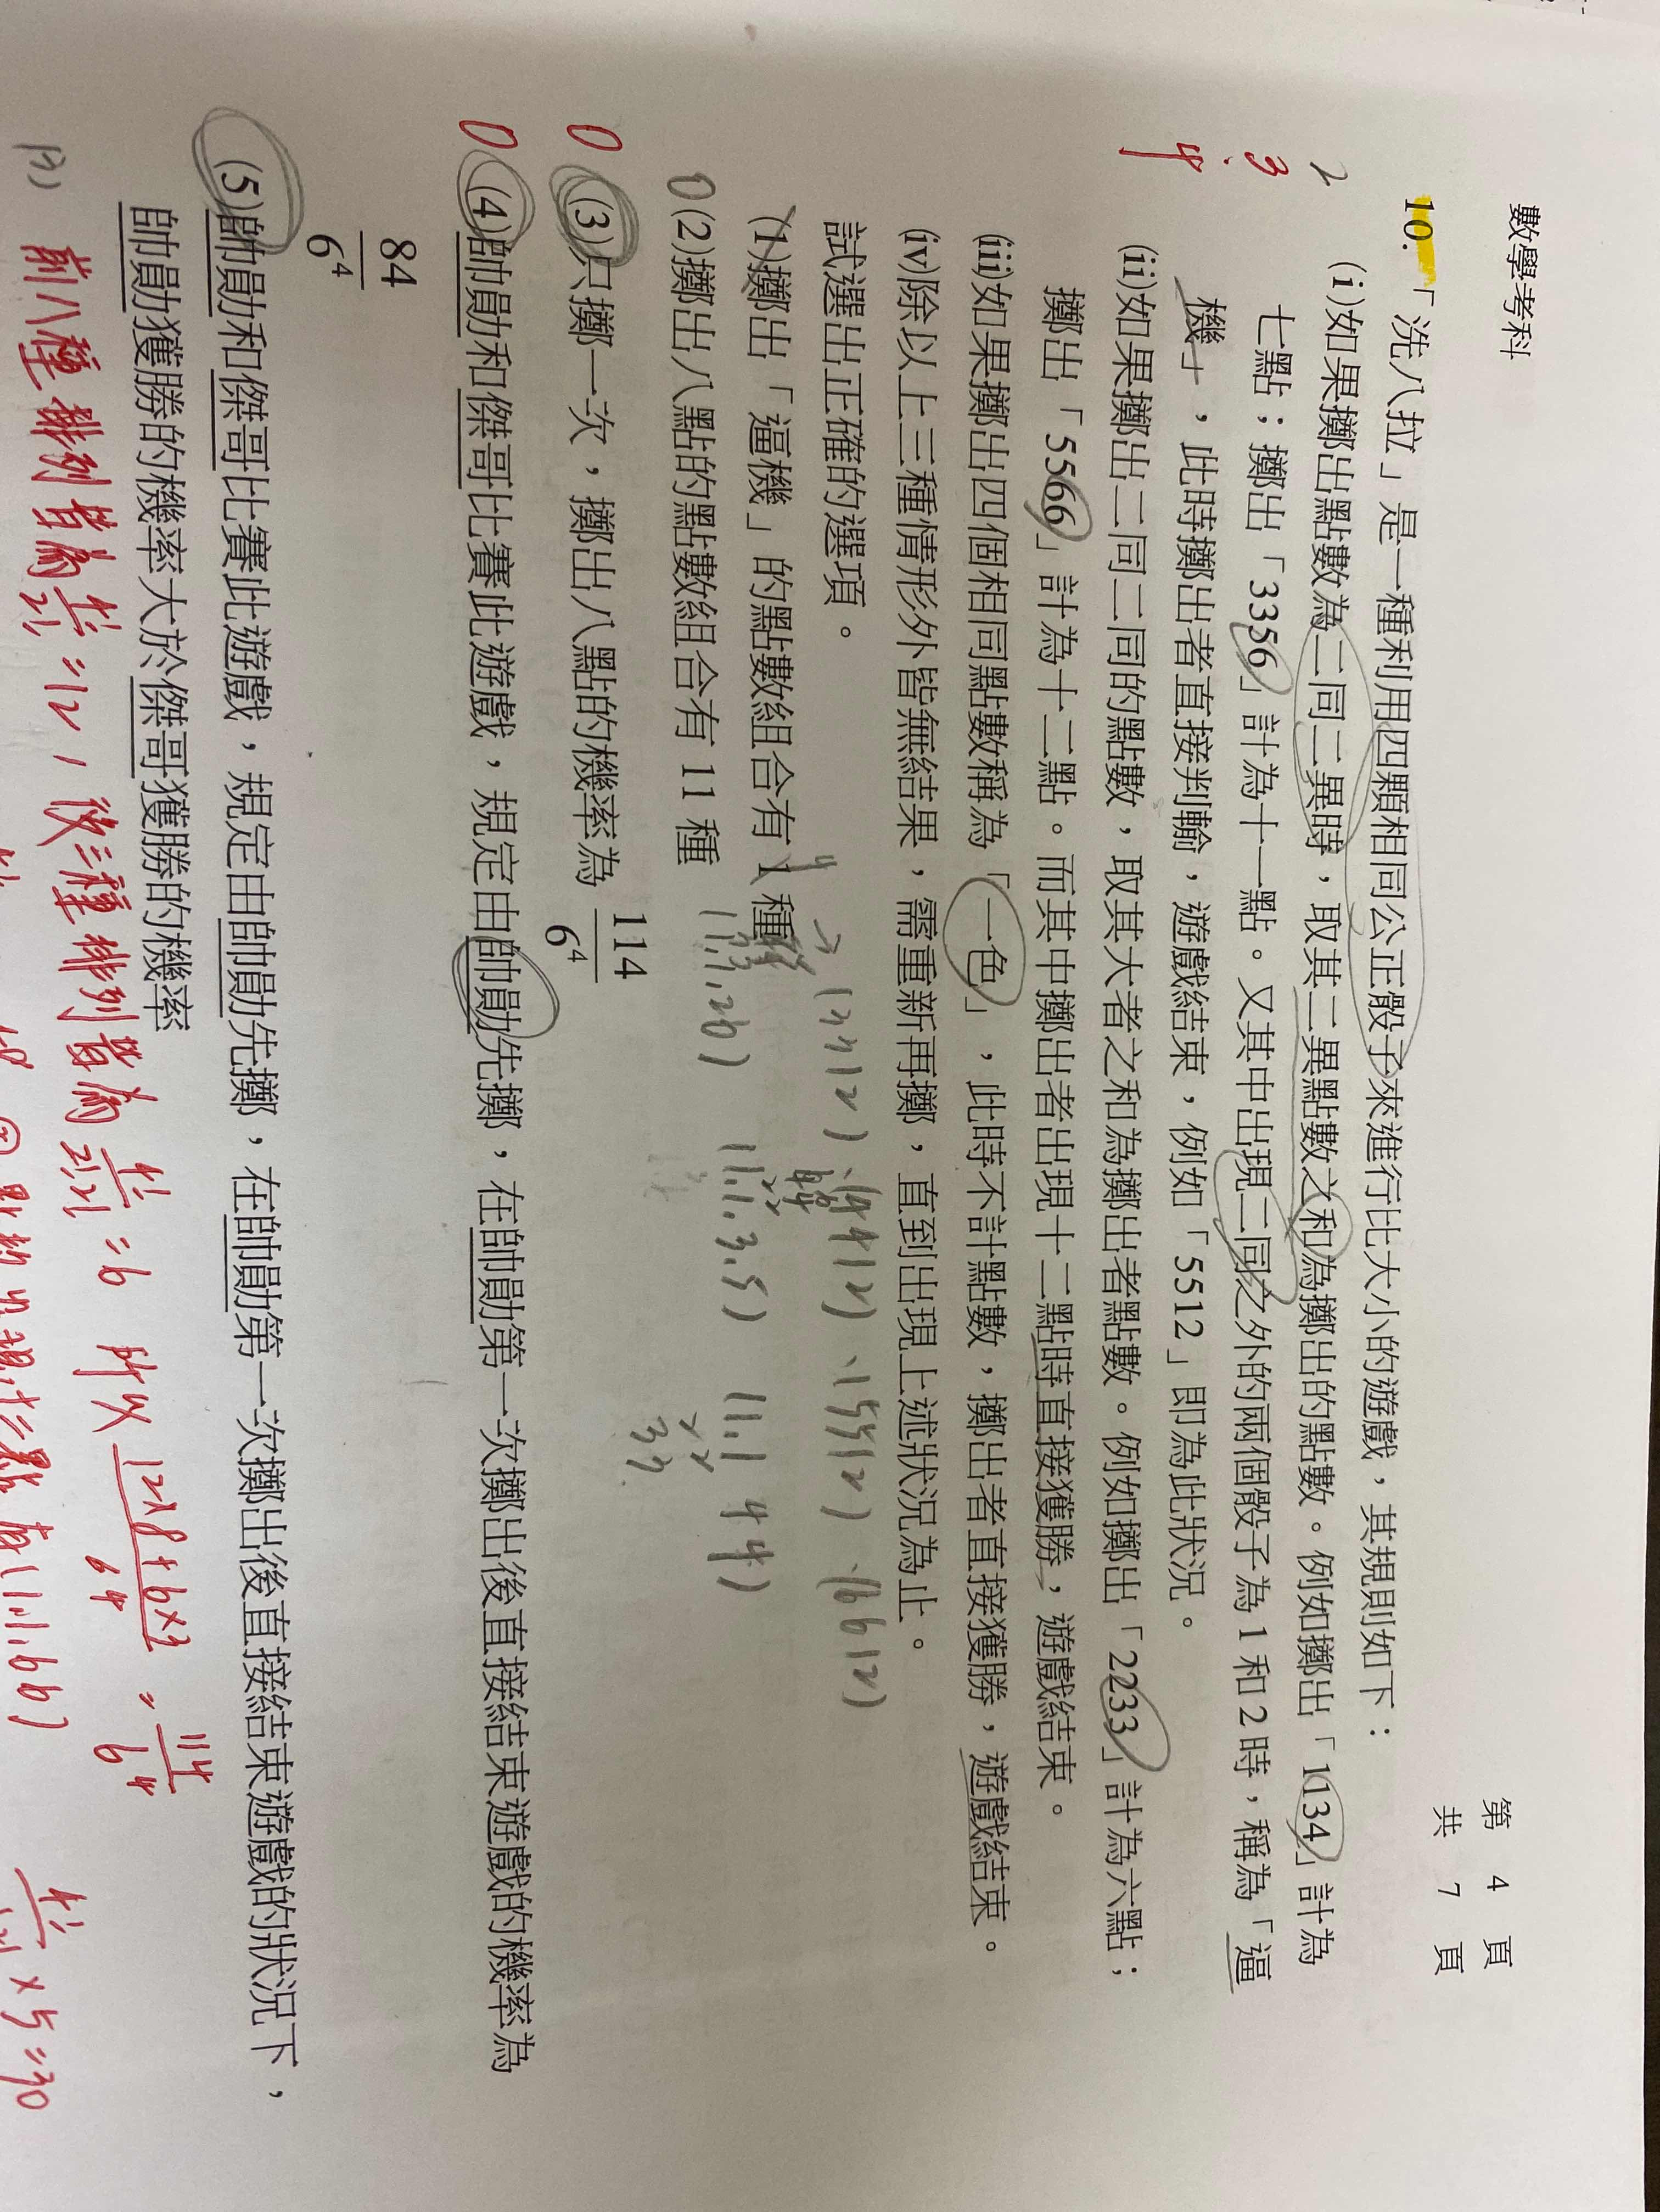 第 4 頁
共 7 頁
數學考科
10.「洗八拉」是一種利用四顆相同公正骰子來進行比大小的遊戲,其規則如下:
(i)如果擲出點數為二同二異時,取其二異點數之和為擲出的點數。例如擲出「1134」計為
七點;擲出「3356」計為十一點。又其中出現二同之外的兩個骰子為 1 和 2 時,稱為「逼
機」,此時擲出者直接判輸,遊戲結束,例如「5512」即為此狀況。
(ii)如果擲出二同二同的點數,取其大者之和為擲出者點數。例如擲出「2233」計為六點;
擲出「5566」計為十二點。而其中擲出者出現十二點時直接獲勝,遊戲結束。
(iii)如果擲出四個相同點數稱為「一色」,此時不計點數,擲出者直接獲勝,遊戲結束。
(iv)除以上三種情形外皆無結果,需重新再擲,直到出現上述狀況為止。
試選出正確的選項。
(1)擲出「逼機」的點數組合有 1 種
(2)擲出八點的點數組合有 11 種
(3)只擲一次,擲出八點的機率為 114/6⁴
(4)帥勛和傑哥比賽此遊戲,規定由帥勛先擲,在帥勛第一次擲出後直接結束遊戲的機率為
84/6⁴
(5)帥勛和傑哥比賽此遊戲,規定由帥勛先擲,在帥勛第一次擲出後直接結束遊戲的狀況下,
帥勛獲勝的機率大於傑哥獲勝的機率
2
3
4
前八種排列皆為 4!/2! = 12,後三種排列皆為 4!/2!2! = 6 所以 12×8+6×3/6⁴ = 114/6⁴